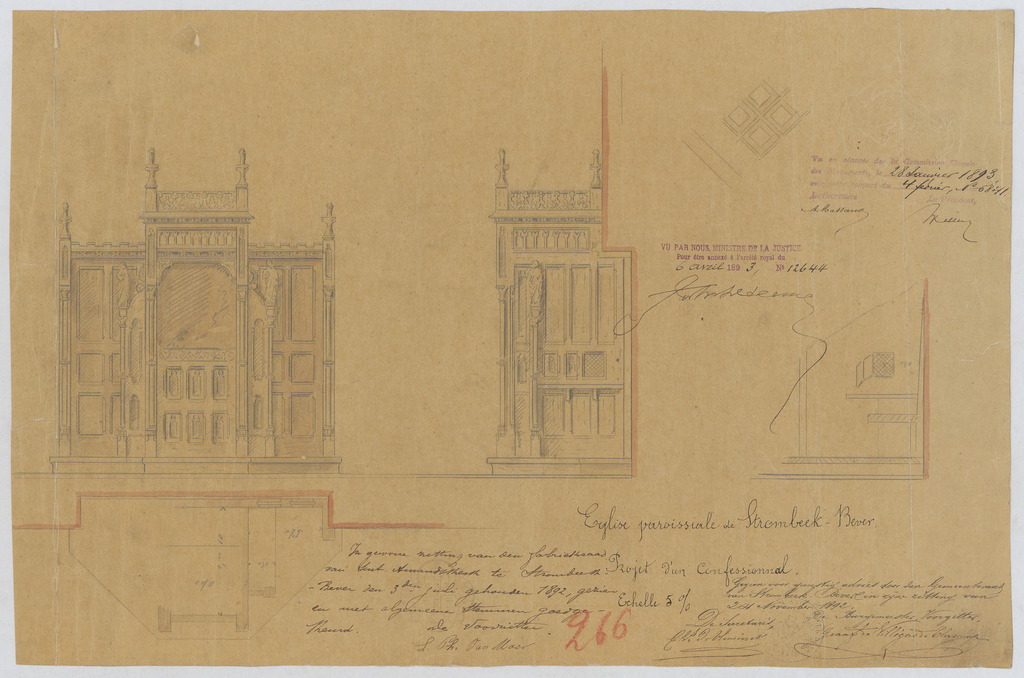 Vu en séance de la Commission Royale
des Monuments, le 28 Janvier 1893
rapport du 4 février, Nº 6841
Le Secrétaire Le Président,
VU PAR NOUS, MINISTRE DE LA JUSTICE
Pour être annexé à l'arrêté royal du
6 avril 1893, Nº 12644
Eglise paroissiale de Strombeek-Bever.
Projet d'un Confessionnal.
Echelle 5 %
In gewone zitting van den fabriekraad
van Sint Amandskerk te Strombeek-
-Bever den 3den julie gehouden 1892, gezien
en met algemeene stemmen goedge-
keurd. de Voorzitter
L. Ph. Van Moer
266
Gezien voor gunstig advies door den Gemeenteraad
van Strombeek-Bever in zijne zitting van
November 1892.
De Secretaris, De Burgemeester Voorzitter